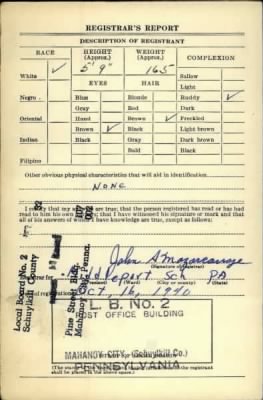 REGISTRAR'S REPORT
DESCRIPTION OF REGISTRANT
RACE HEIGHT (Approx.) WEIGHT (Approx.) COMPLEXION
White ✓ 5' 9" 165 Sallow
EYES HAIR Light
Negro Blue Blonde Ruddy ✓
Gray Red Dark
Oriental Hazel Brown ✓ Freckled
Brown ✓ Black Light brown
Indian Black Gray Dark brown
Bald Black
Filipino
Other obvious physical characteristics that will aid in identification
NONE
my answers are true; that the person registered has read or has had
read to him his own answers; that I have witnessed his signature or mark and that
all of his answers of which I have knowledge are true, except as follows:
Local Board No. 2
Schuylkill County
82
107
002
Pine Street Bldg.
Mahanoy City, Penna.
John S
(Signature of registrar)
Registrar for Sch PA
(Ward) (City or county) (State)
Date of registration Oct. 16, 1940
L. B. NO. 2
POST OFFICE BUILDING
MAHANOY CITY (Schuylkill Co.)
PENNSYLVANIA
shall be placed in the above space.)